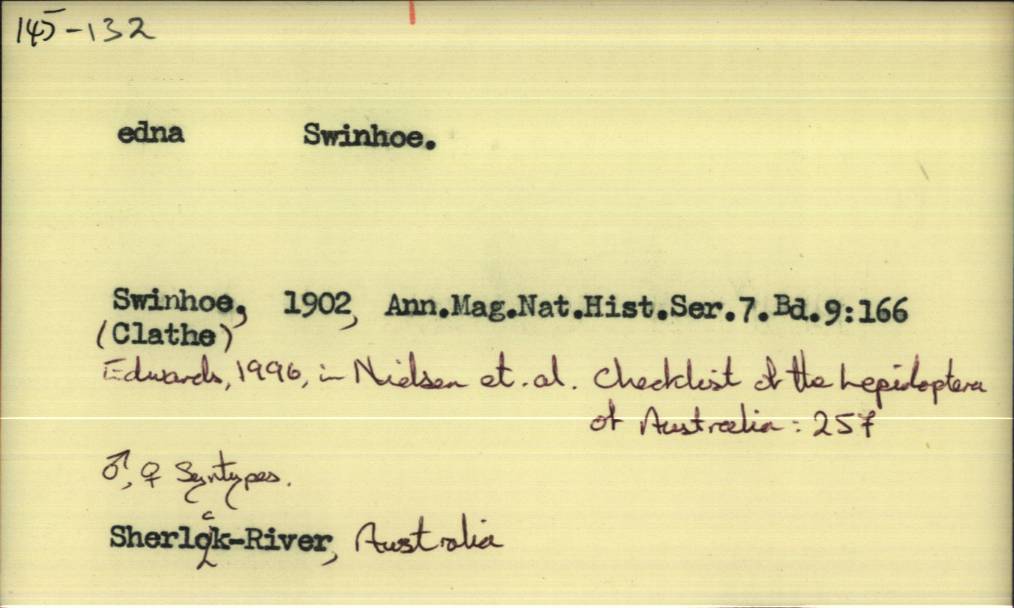 145-132
edna Swinhoe.
Swinhoe, 1902, Ann.Mag.Nat.Hist.Ser.7.Bd.9:166
(Clathe)
Edwards, 1996, in Nielsen et. al. Checklist of the Lepidoptera
of Australia: 257
♂, ♀ Syntypes.
c
Sherlok-River, Australia